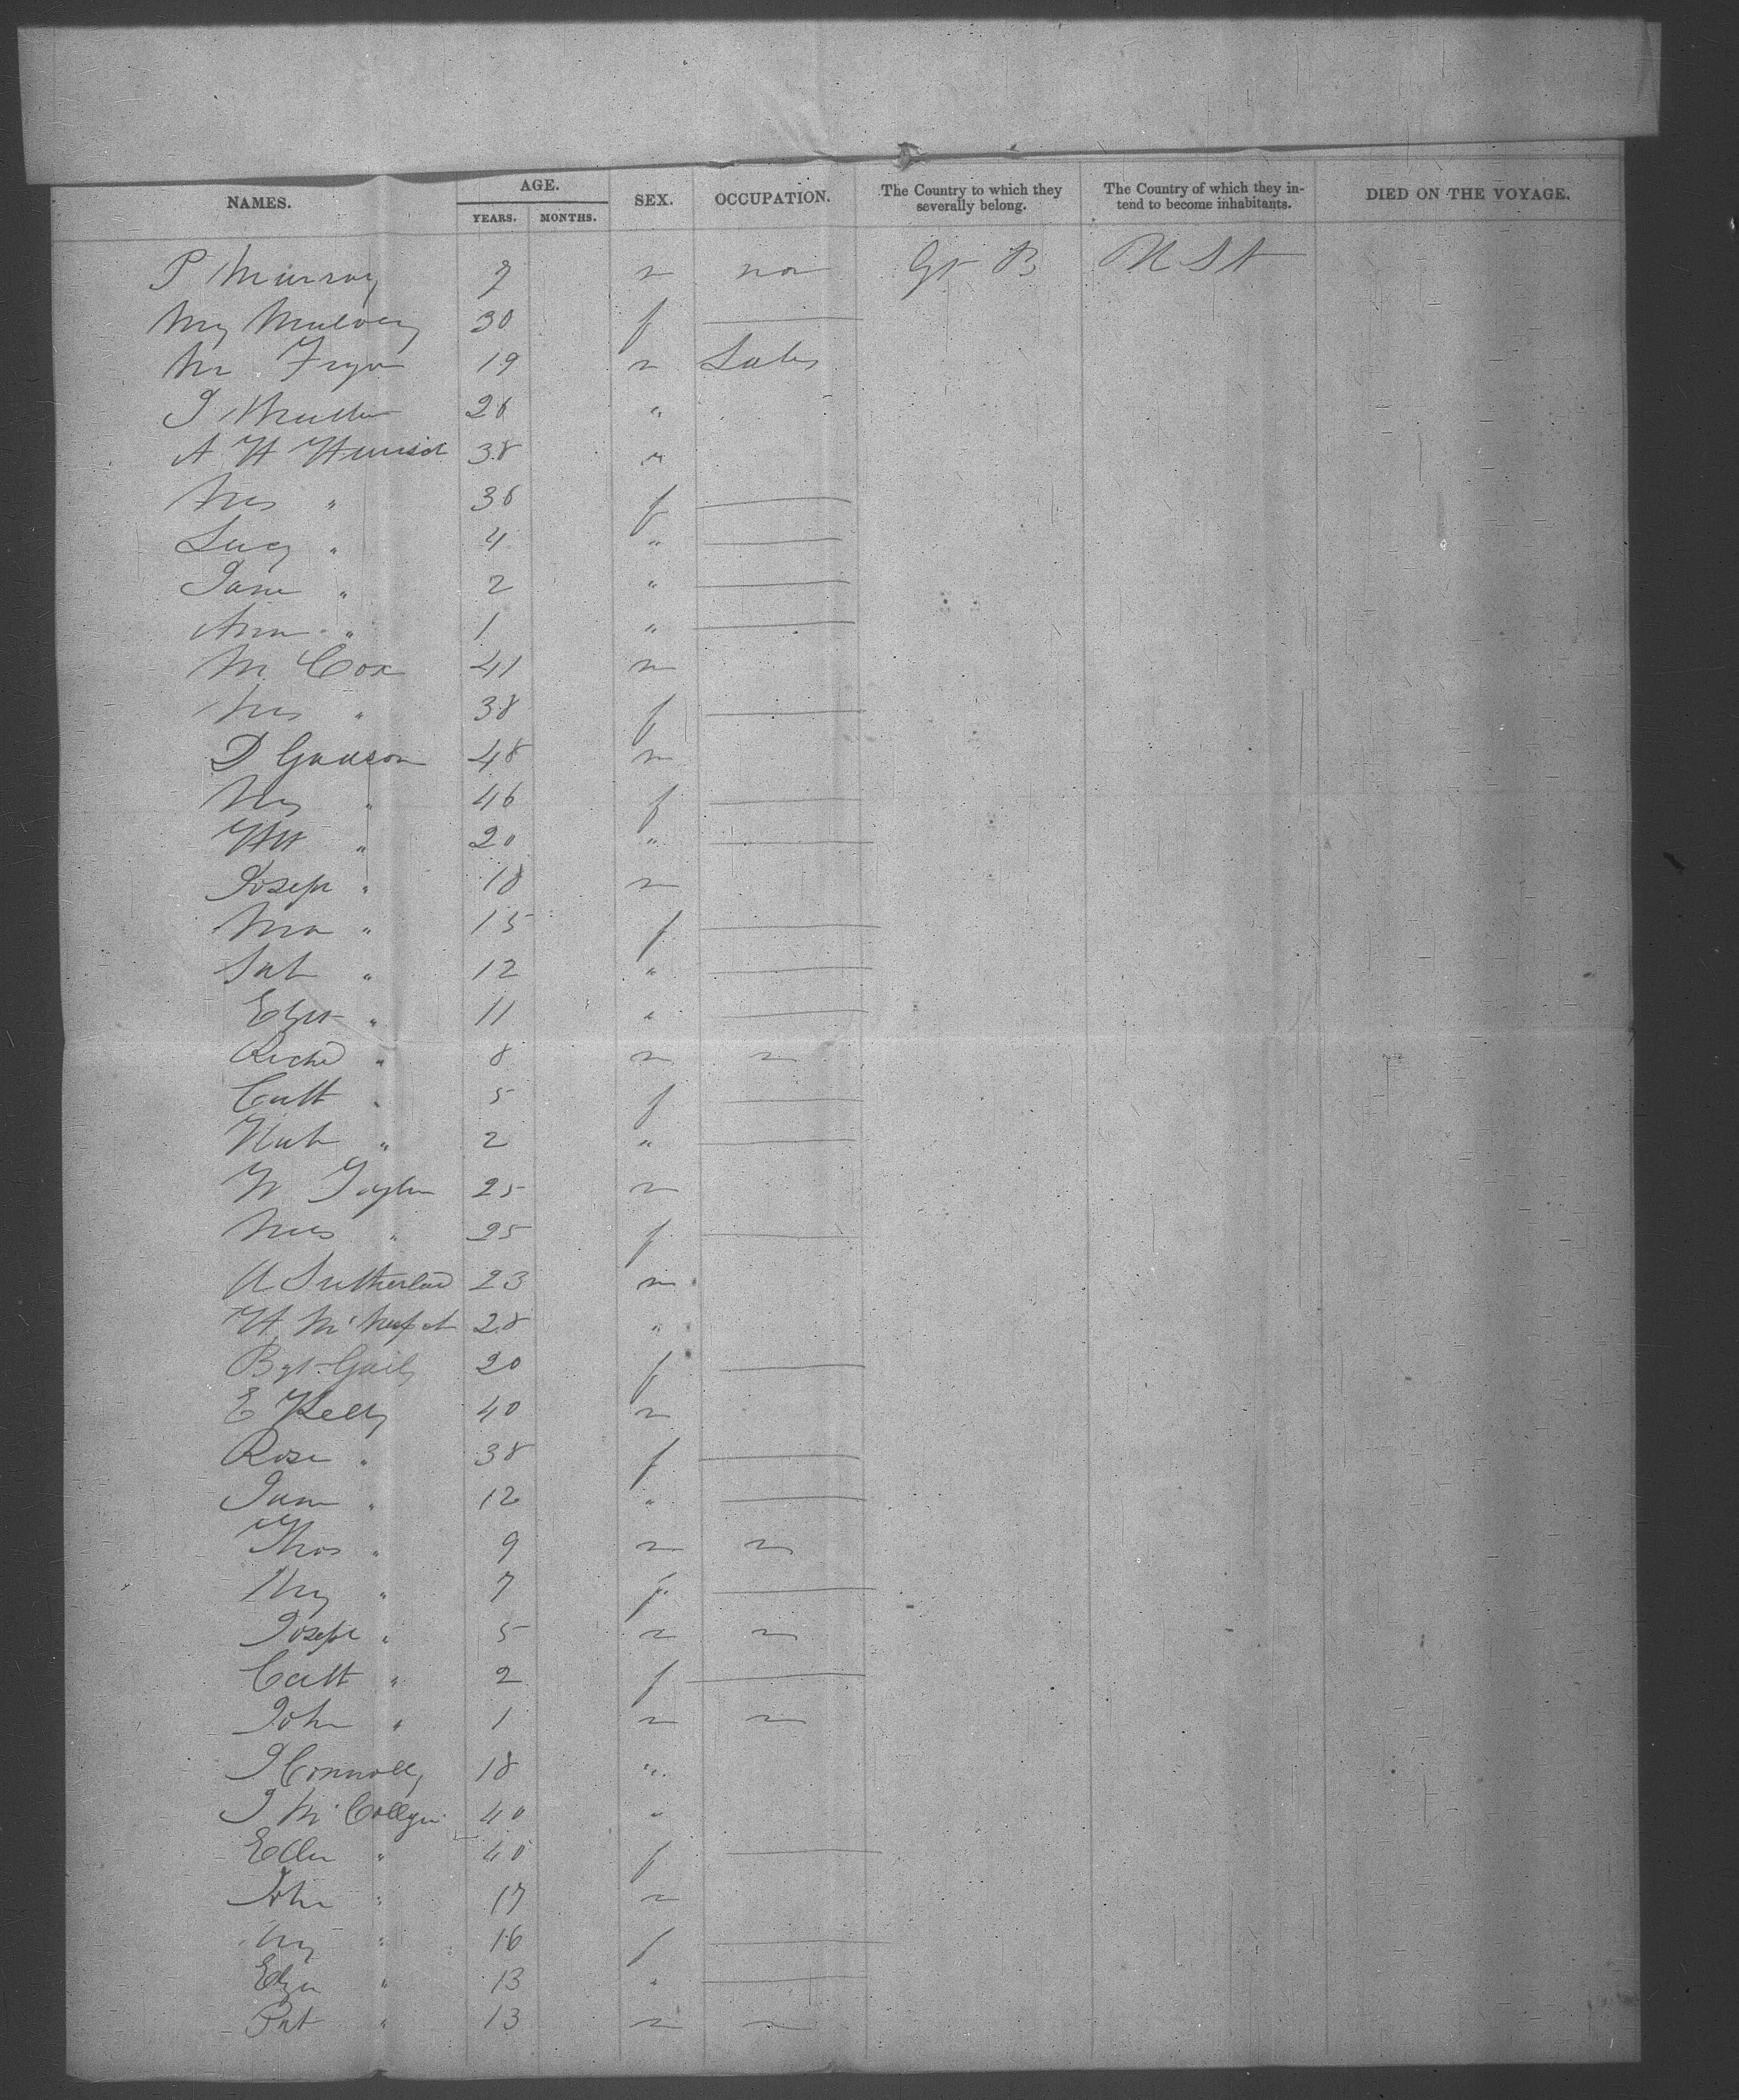 NAMES. AGE. YEARS. MONTHS. SEX. OCCUPATION. The Country to which they severally belong. The Country of which they in-tend to become inhabitants. DIED ON THE VOYAGE.
P Murray 7 m non Gt B U S A
My Mulvey 30 f
Mr Fryer 19 m Labr
J Muller 26 "
A H 38 "
Mrs " 36 f
Lucy " 4 "
Jane " 2 "
Ann " 1 "
M Cox 41 m
Mrs " 38 f
D 48 m
My " 46 f
" 20 "
Joseph " 18 m
Ma " 15 f
" 12 "
Elizth " 11 "
Richd " 8 m "
Cath " 5 f
" 2 "
W Taylor 25 m
Mrs " 25 f
A Sutherland 23 m
28 "
Bgt 20 f
E Kelly 40 m
Rose " 38 f
Jane " 12 "
Thos " 9 m "
My " 7 f
Joseph " 5 m "
Cath " 2 f
John " 1 m "
J Connolly 18 "
J 40 "
Ellen " 40 f
John " 17 m
My " 16 f
Eliza " 13 "
Pat " 13 m "